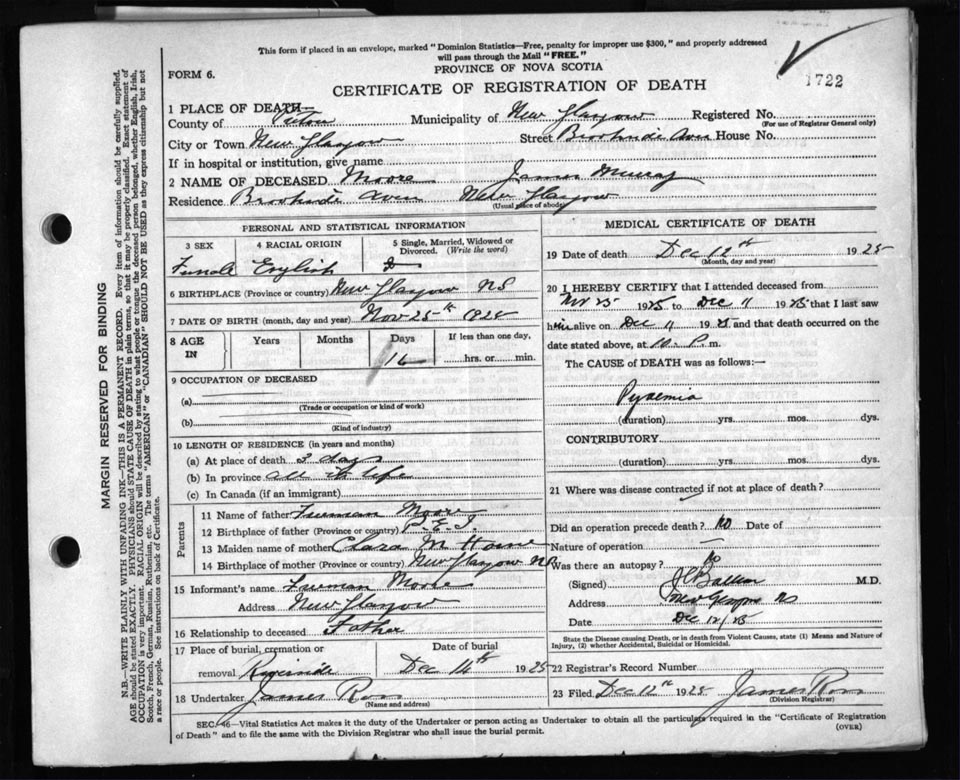 This form if placed in an envelope, marked "Dominion Statistics—Free, penalty for improper use $300," and properly addressed
will pass through the Mail "FREE."
FORM 6.
PROVINCE OF NOVA SCOTIA
1722
CERTIFICATE OF REGISTRATION OF DEATH
1 PLACE OF DEATH—
County of Pictou Municipality of New Glasgow Registered No.
(For use of Registrar General only)
City or Town New Glasgow Street Brookside Aven House No.
If in hospital or institution, give name
2 NAME OF DECEASED Moore James Murray
Residence Brookside Aven New Glasgow
(Usual place of abode)
PERSONAL AND STATISTICAL INFORMATION
3 SEX 4 RACIAL ORIGIN 5 Single, Married, Widowed or Divorced. (Write the word)
Female English
6 BIRTHPLACE (Province or country) New Glasgow NS
7 DATE OF BIRTH (month, day and year) Nov 25th 1925
8 AGE IN Years Months Days If less than one day,
16 hrs. or min.
9 OCCUPATION OF DECEASED
(a)
(Trade or occupation or kind of work)
(b)
(Kind of industry)
10 LENGTH OF RESIDENCE (in years and months)
(a) At place of death 3 days
(b) In province all its life
(c) In Canada (if an immigrant)
Parents
11 Name of father Furman Moore
12 Birthplace of father (Province or country) P.E.I.
13 Maiden name of mother Clara M
14 Birthplace of mother (Province or country) New Glasgow NS
15 Informant's name Furman Moore
Address New Glasgow
16 Relationship to deceased Father
17 Place of burial, cremation or removal Riverside
Date of burial
Dec 14th 1925
18 Undertaker James Ross
(Name and address)
MEDICAL CERTIFICATE OF DEATH
19 Date of death Dec 12th 1925
(Month, day and year)
20 I HEREBY CERTIFY that I attended deceased from
Nov 25 1925 to Dec 11 1925 that I last saw
him alive on Dec 11 1925 and that death occurred on the
date stated above, at 10 P. m.
The CAUSE of DEATH was as follows:—
Pyaemia
(duration) yrs. mos. dys.
CONTRIBUTORY
(duration) yrs. mos. dys.
21 Where was disease contracted if not at place of death?
Did an operation precede death? No Date of
Nature of operation —
Was there an autopsy? No
(Signed) M.D.
Address New Glasgow NS
Date Dec 12/25
State the Disease causing Death, or in death from Violent Causes, state (1) Means and Nature of
Injury, (2) whether Accidental, Suicidal or Homicidal.
22 Registrar's Record Number
23 Filed Dec 12th 1925 James Ross
(Division Registrar)
SEC. 46—Vital Statistics Act makes it the duty of the Undertaker or person acting as Undertaker to obtain all the particulars required in the "Certificate of Registration
of Death" and to file the same with the Division Registrar who shall issue the burial permit.
(OVER)
MARGIN RESERVED FOR BINDING
N.B.—WRITE PLAINLY WITH UNFADING INK—THIS IS A PERMANENT RECORD. Every item of information should be carefully supplied.
AGE should be stated EXACTLY. PHYSICIANS should STATE CAUSE OF DEATH in plain terms, so that it may be properly classified. Exact statement of
OCCUPATION is very important. RACIAL ORIGIN will be described by stating to what people or tongue the deceased person belonged, whether English, Irish,
Scotch, French, German, Russian, Ruthenian, etc. The terms "AMERICAN" or "CANADIAN" SHOULD NOT BE USED as they express citizenship but not
a race or people. See instructions on back of Certificate.